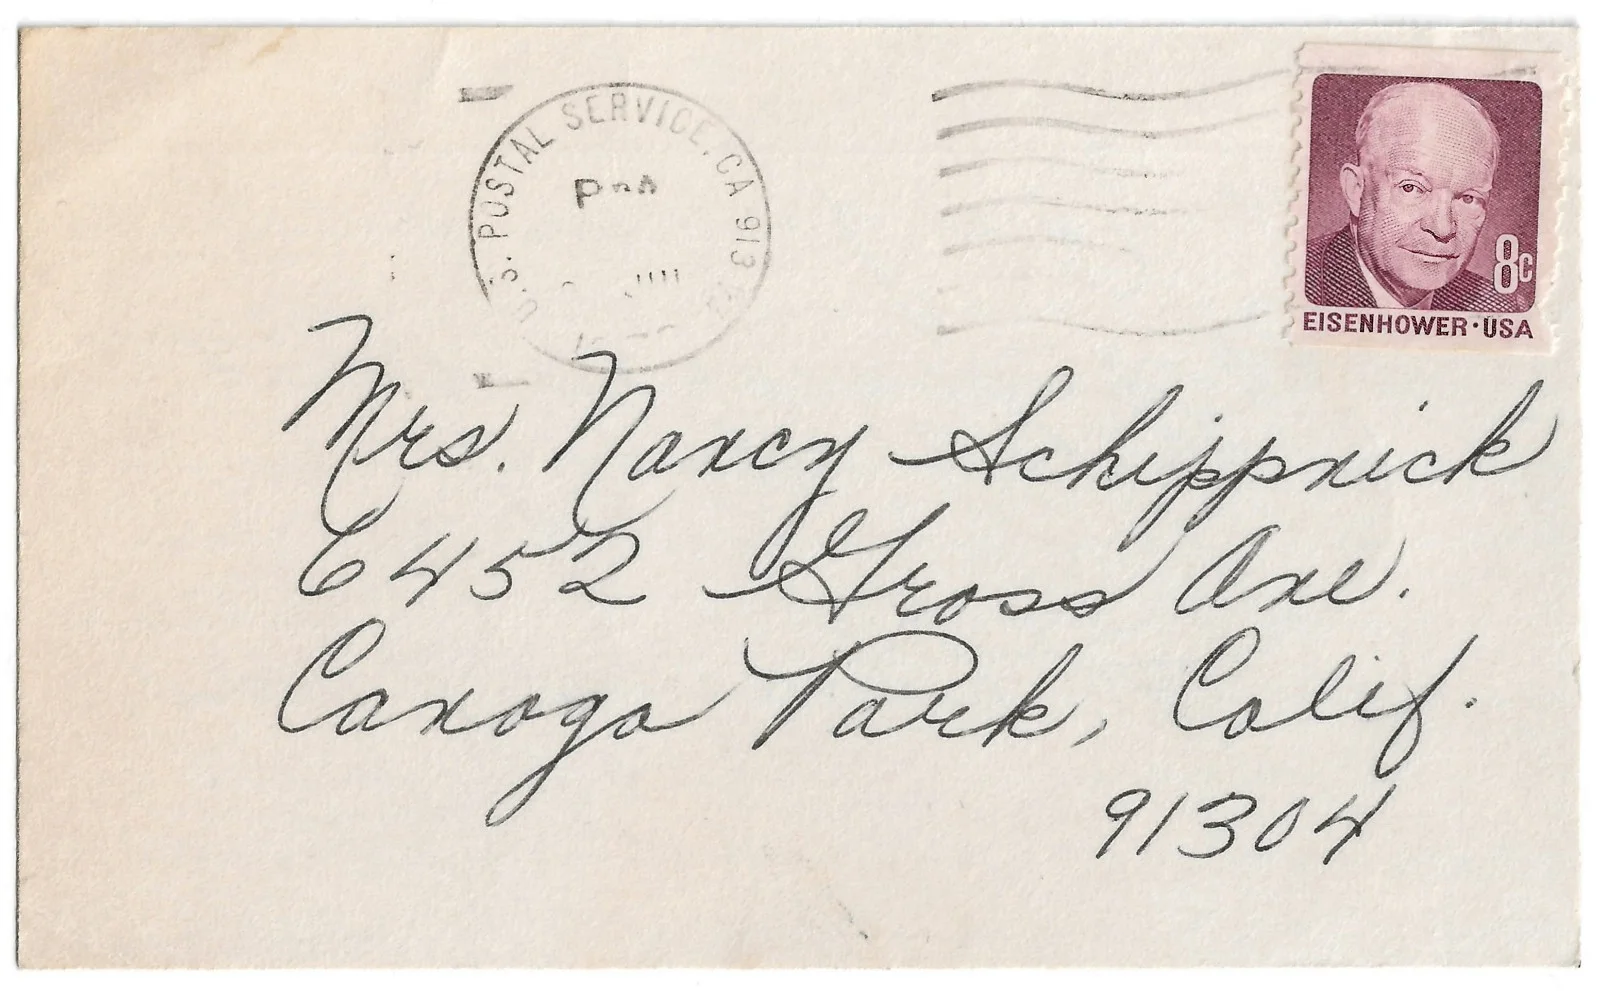 U.S. POSTAL SERVICE, CA 913
PM
8c
EISENHOWER·USA
Mrs. Nancy Schippnick
6452 Gross Ave.
Canoga Park, Calif.
91304